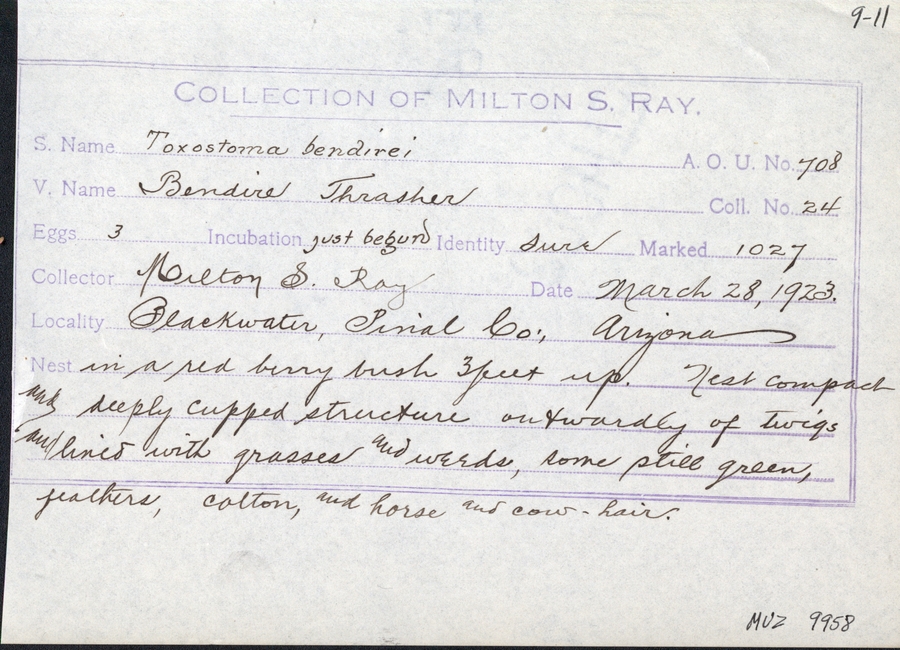 9-11
COLLECTION OF MILTON S. RAY.
S. Name Toxostoma bendirei A. O. U. No. 708
V. Name Bendire Thrasher Coll. No. 24
Eggs 3 Incubation just begun Identity Sure Marked 1027
Collector Milton S. Ray Date March 28, 1923.
Locality Blackwater, Pinal Co., Arizona
Nest in a red berry bush 3 feet up. Nest compact
and deeply cupped structure outwardly of twigs
and lined with grasses and weeds, some still green,
feathers, cotton, and horse and cow-hair.
MVZ 9958